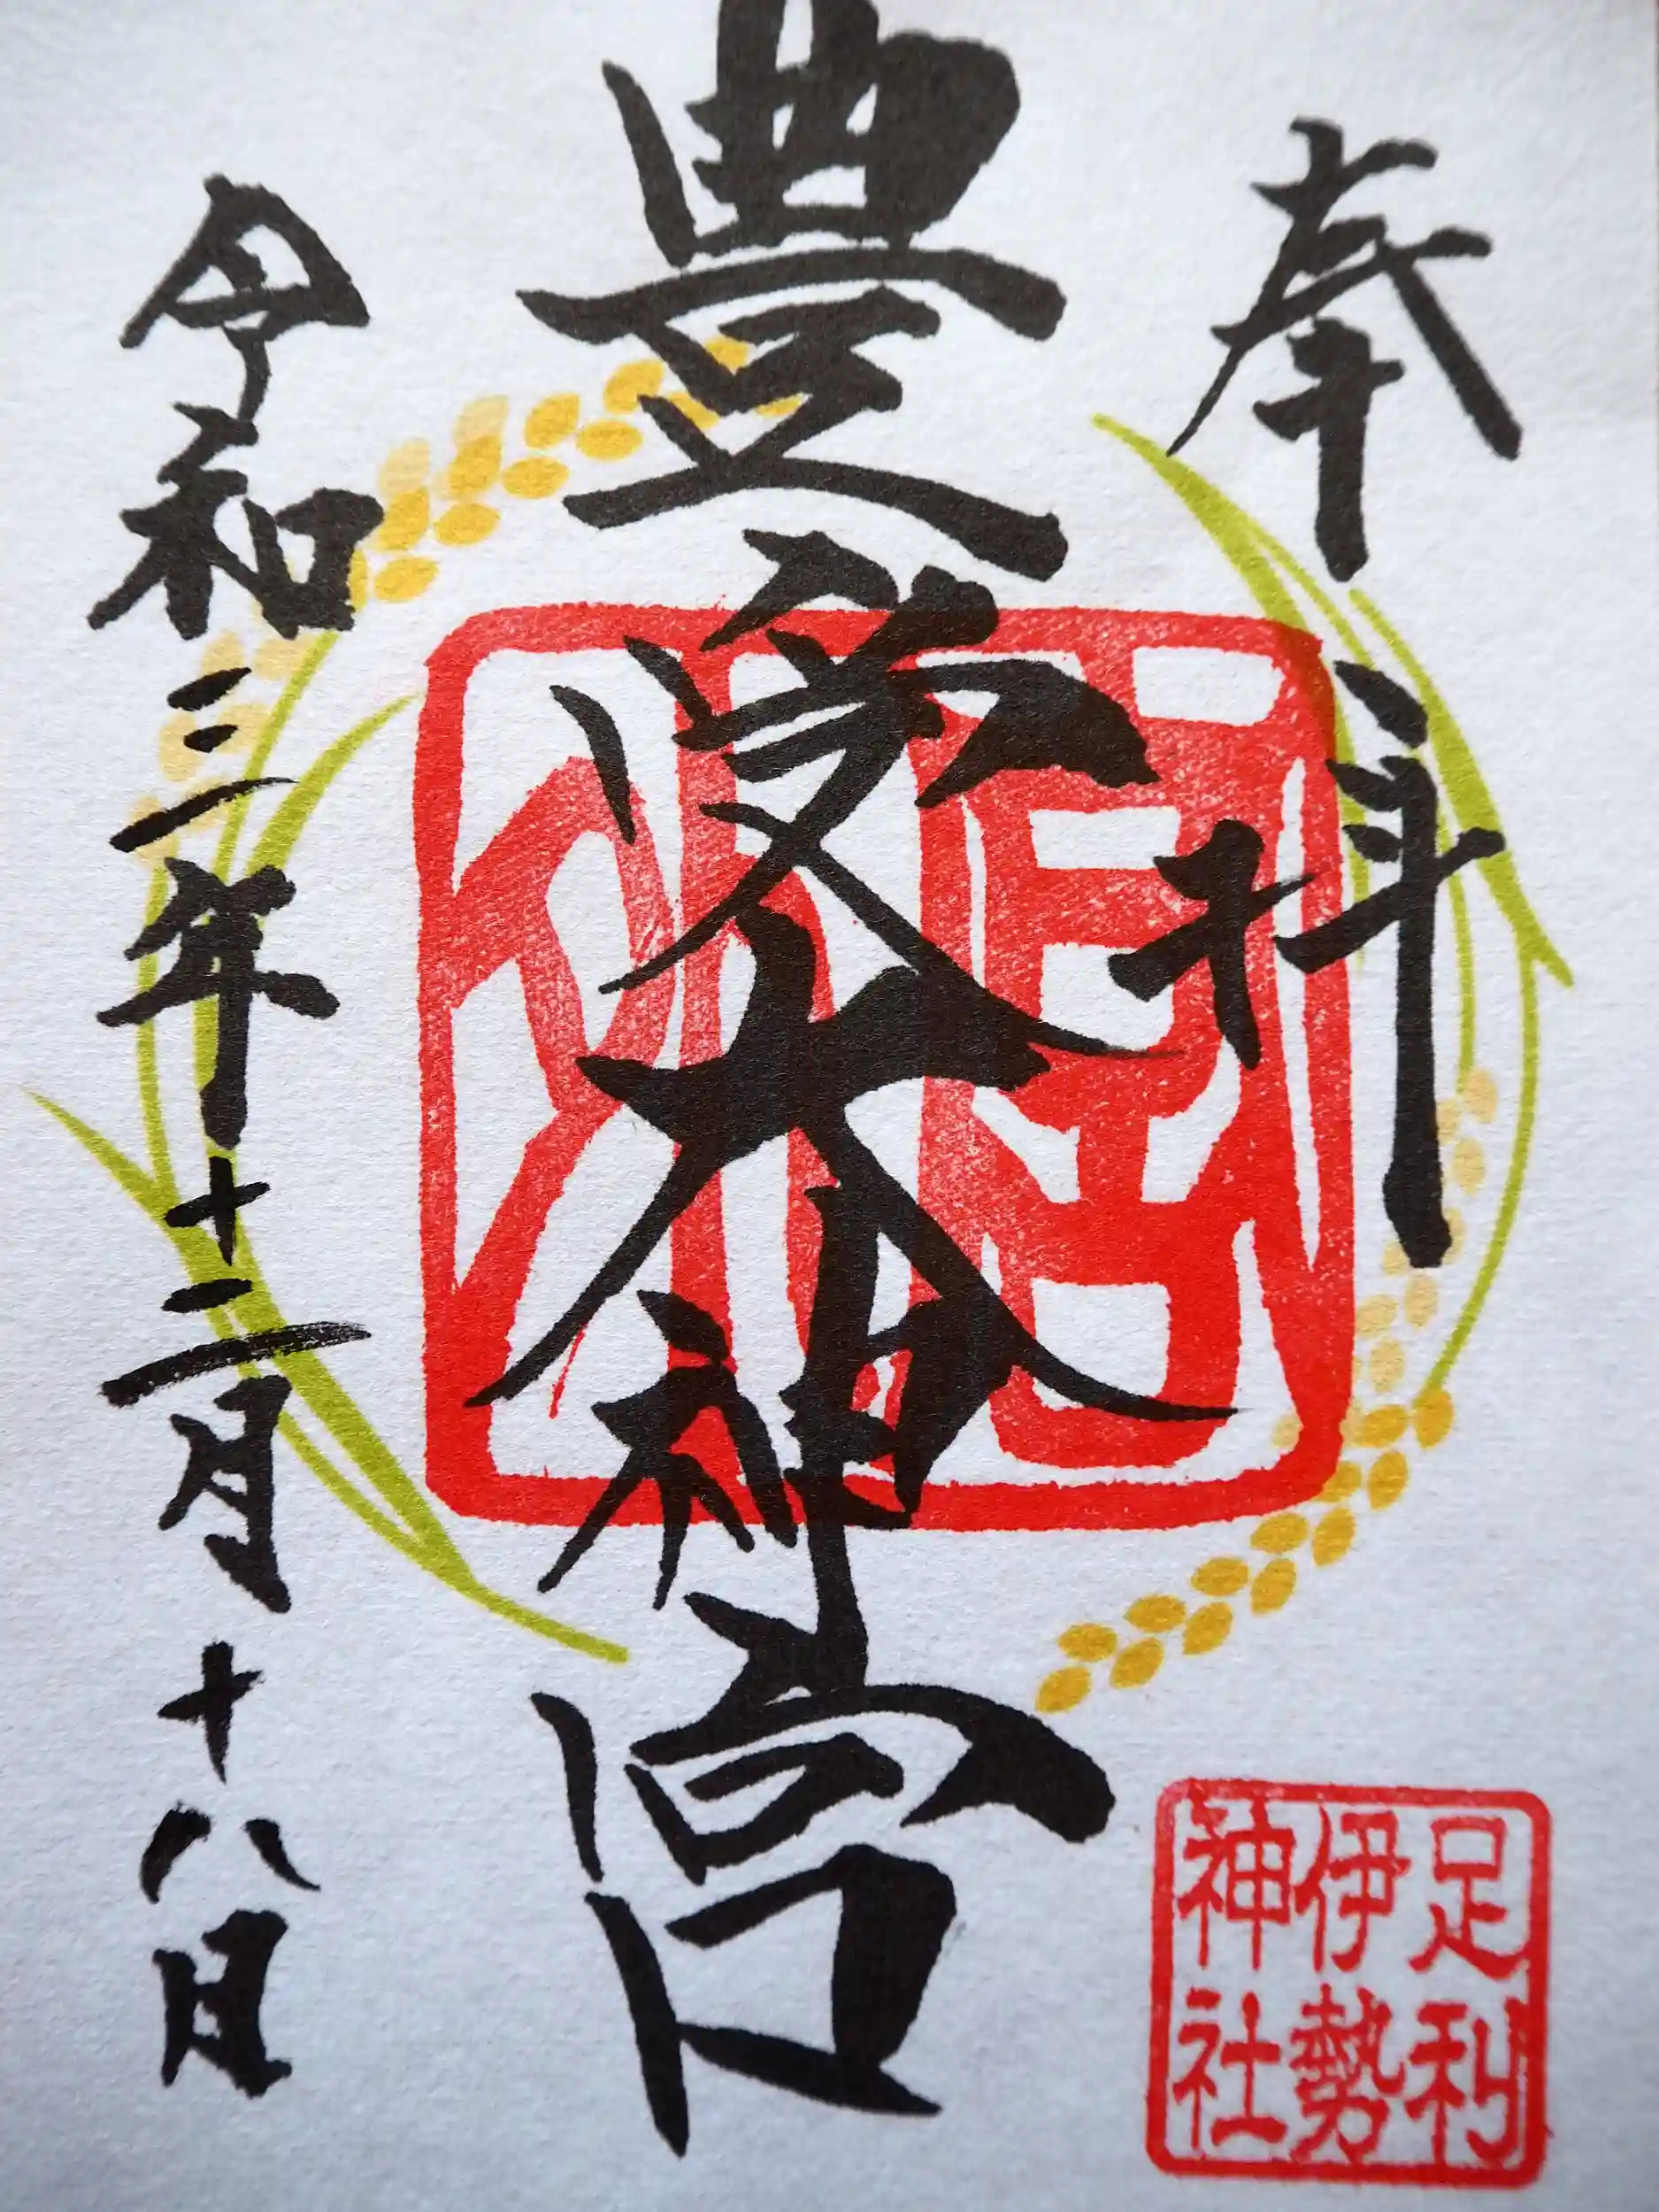 奉拝
豊受大神宮
令和三年十二月十八日
足利
伊勢
神社